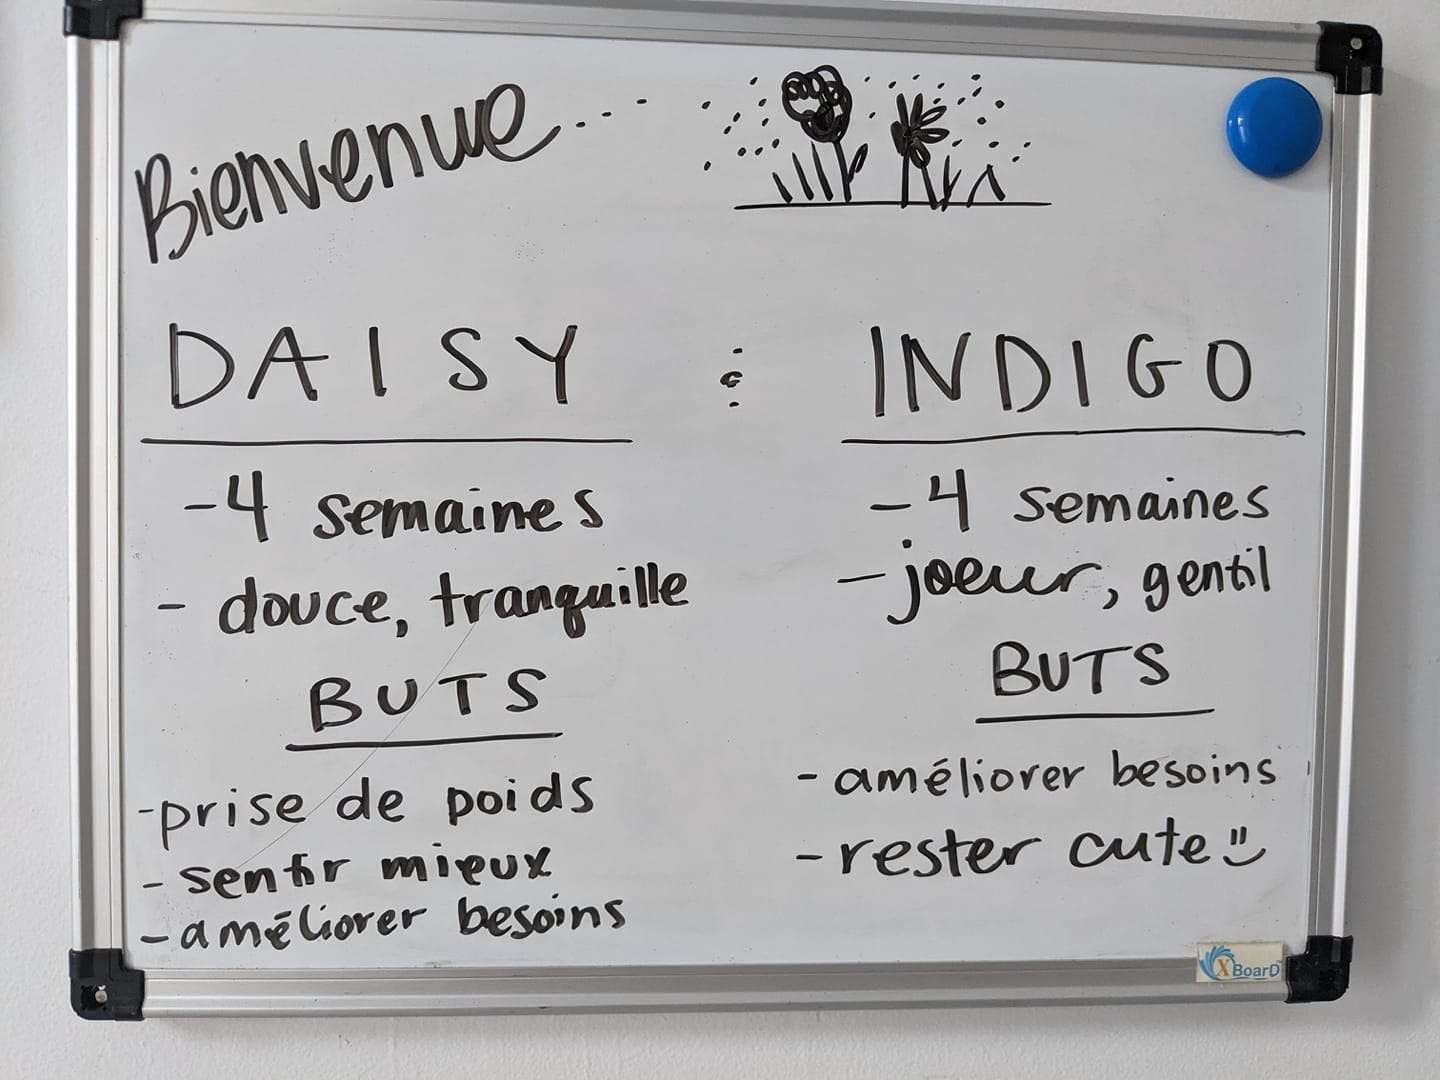 Bienvenue...
DAISY
- 4 semaines
- douce, tranquille
BUTS
- prise de poids
- sentir mieux
- améliorer besoins
INDIGO
- 4 semaines
- joeur, gentil
BUTS
- améliorer besoins
- rester cute
XBoarD